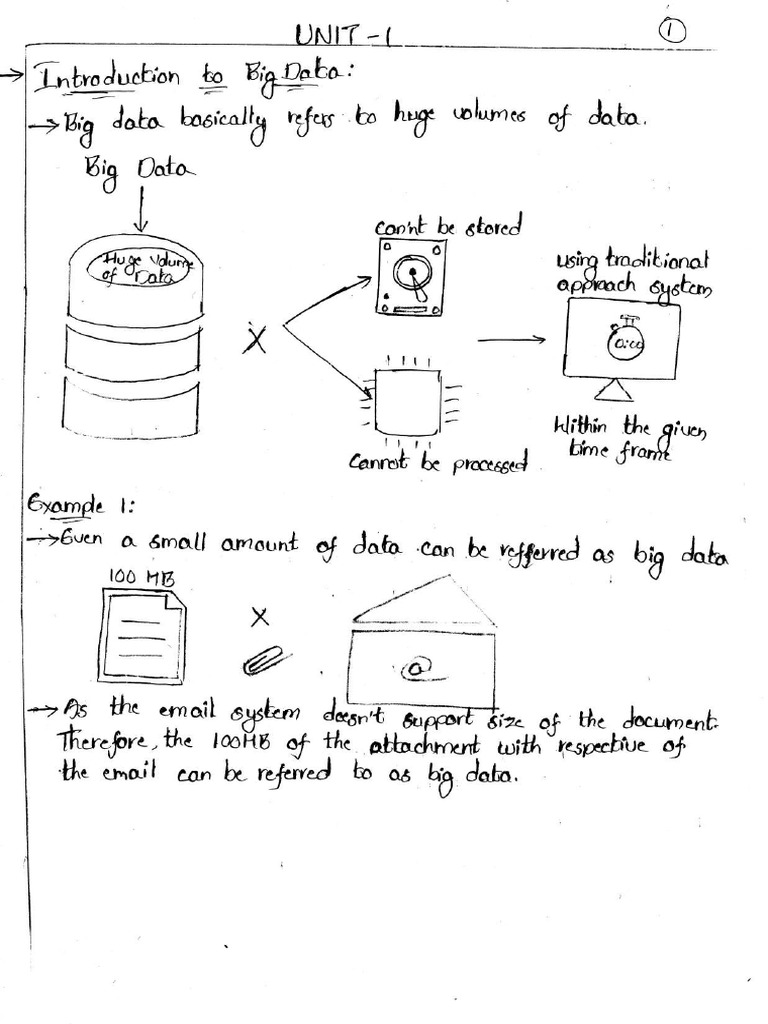 UNIT-1
1
Introduction to Big Data:
→ Big data basically refers to huge volumes of data.
Big Data
Huge Volume
of Data
X
can'nt be stored
Cannot be processed
using traditional
approach system
Within the given
time frame
Example 1:
→ Even a small amount of data can be refferred as big data
100 MB
X
@
→ As the email system doesn't support size of the document.
Therefore, the 100MB of the attachment with respective of
the email can be referred to as big data.